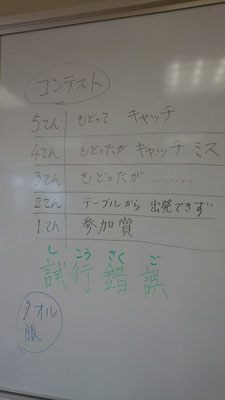 コンテスト
5てん もどって キャッチ
4てん もどったが キャッチ ミス
3てん もどったが………
2てん テーブルから 出発できず
1てん 参加賞
し こう さく ご
試行錯誤
タオル
服